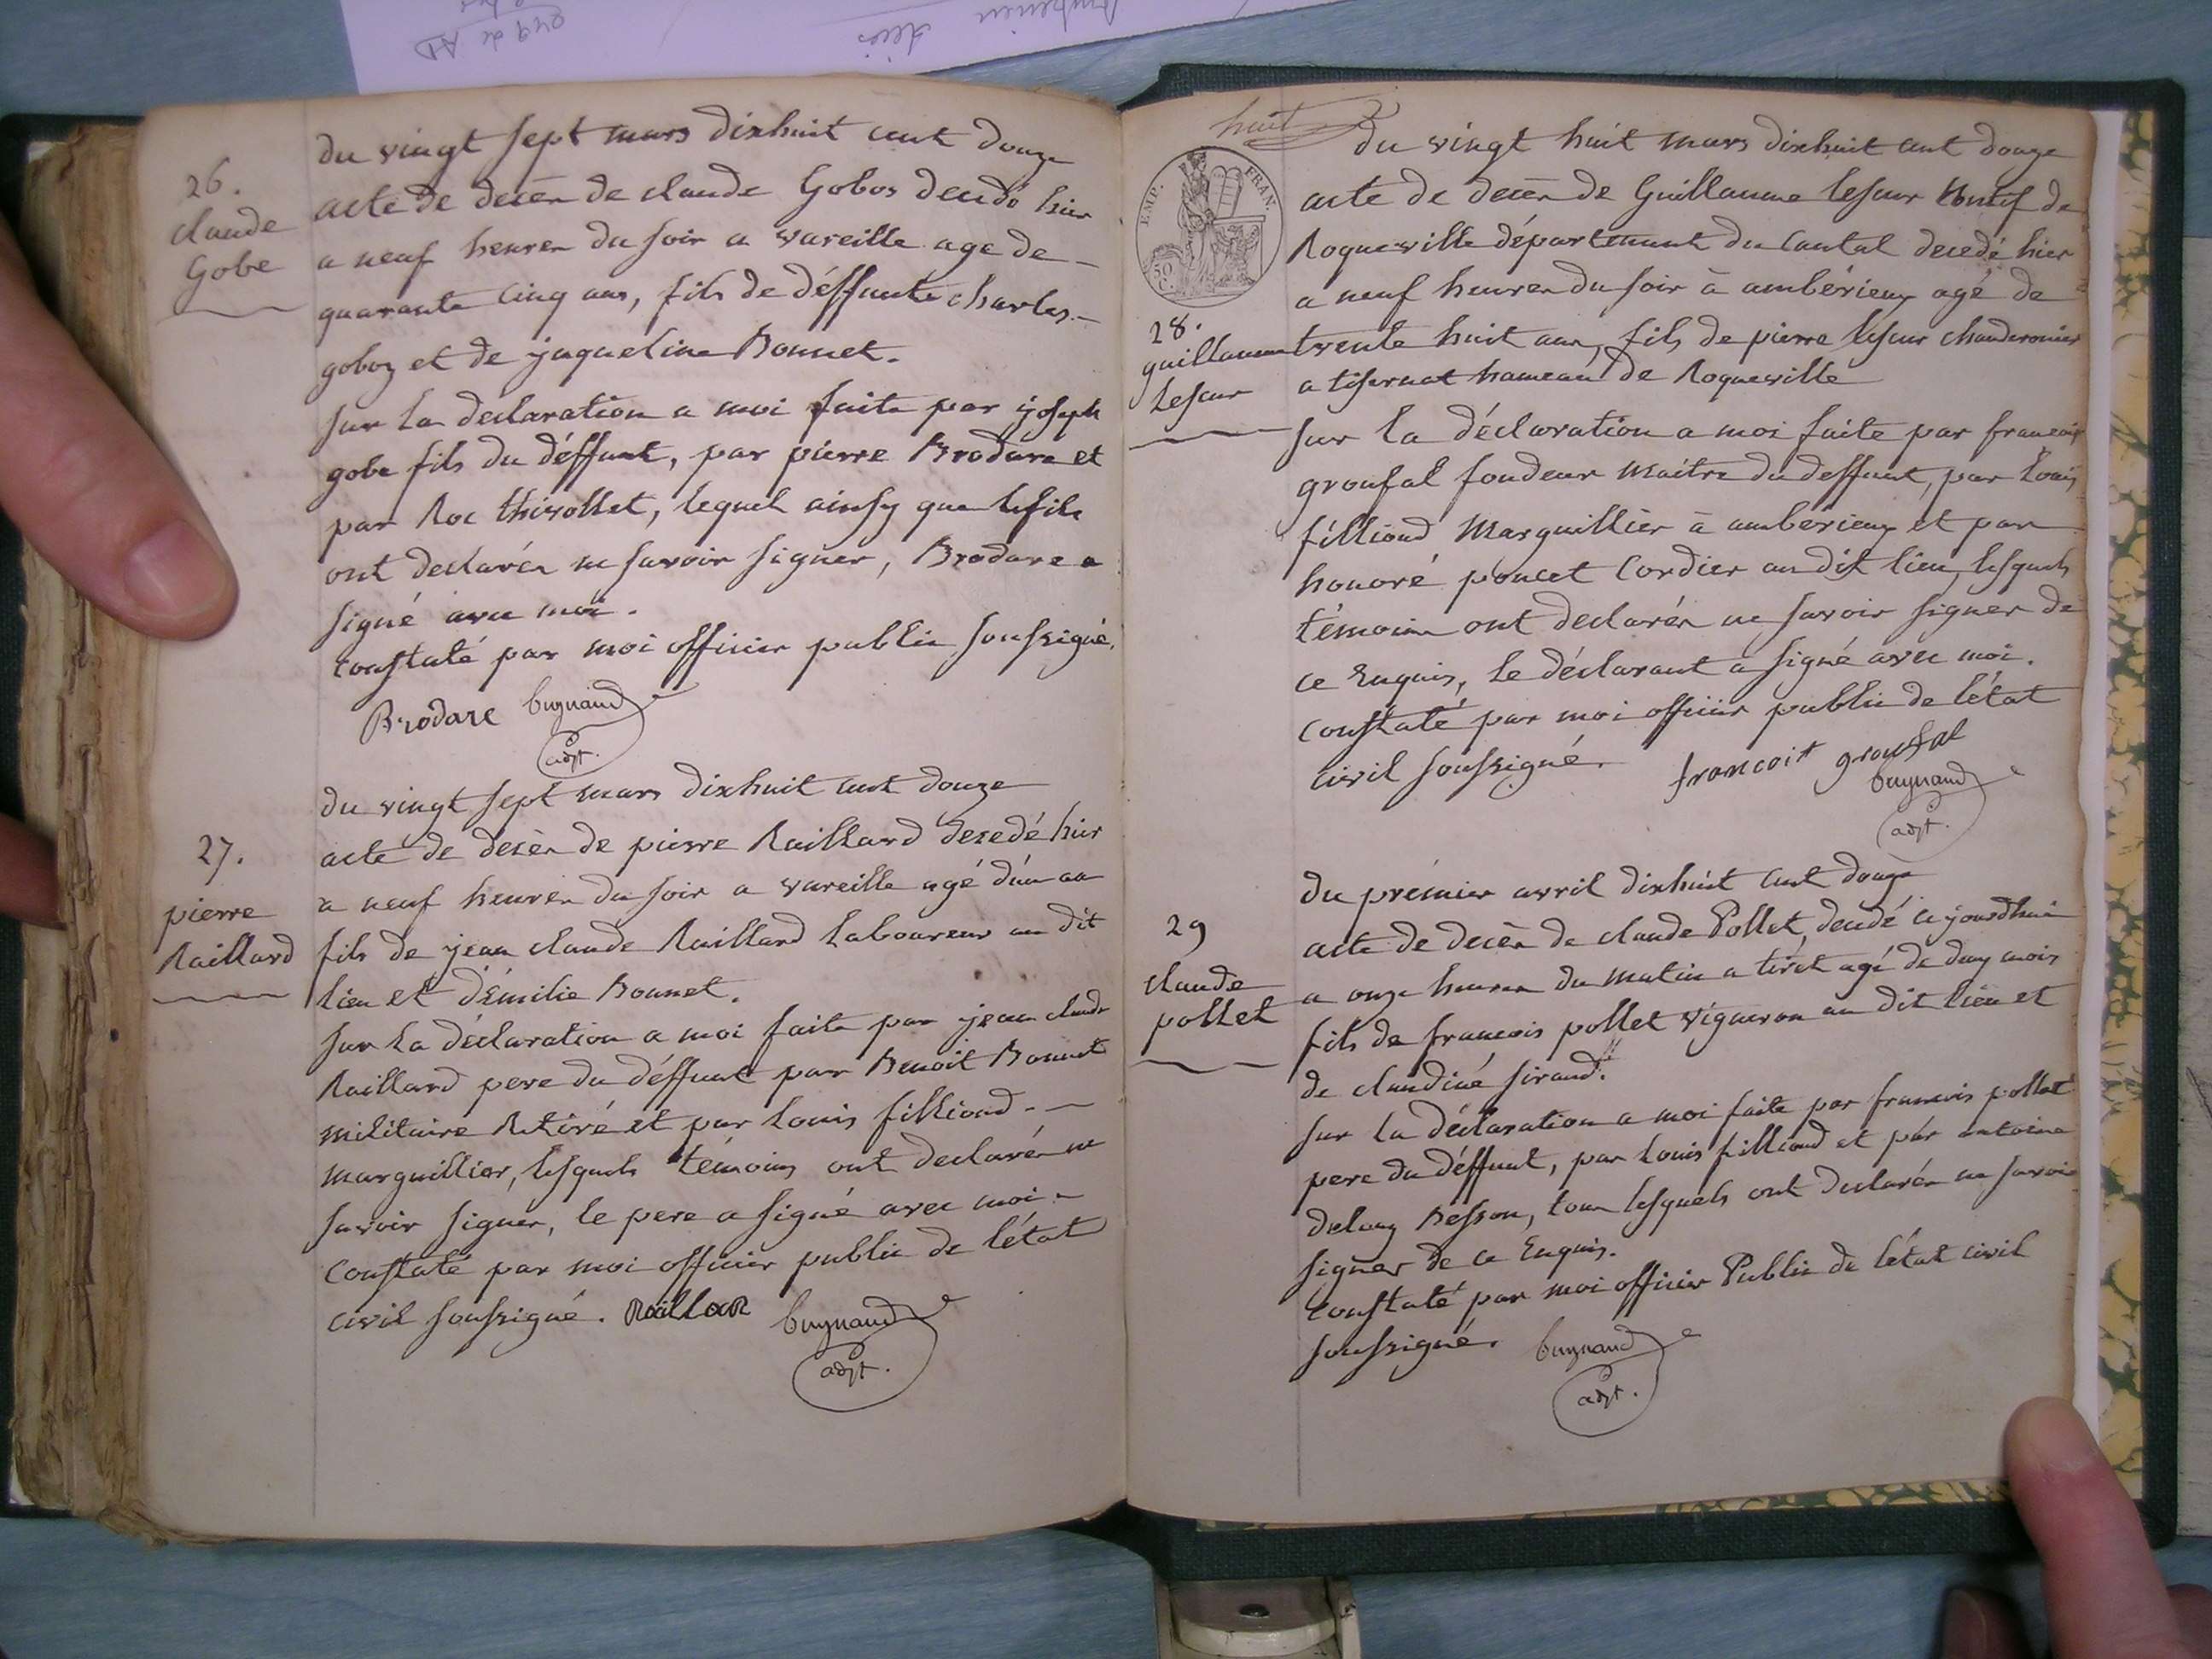 26.
claude
Gobe
du vingt sept mars dixhuit cent douze
acte de decèn de claude Gobos decedé hier
a neuf heuren du soir a vareille age de -
quarante cinq ans, fils de déffunts charles -
goboz et de jaqueline Bonnet.
sur la declaration a moi faite par joseph
gobe fils du déffunt, par pierre Brodare et
par Roc thivollet, lequel ainsy que le fils
ont declarén ne savoir signer, Brodare a
signé avec moi.
constaté par moi officier public soussigné.
Brodare bugnand
adjt.
27.
pierre
Raillard
du vingt sept mars dixhuit cent douze
acte de decèn de pierre Raillard decedé hier
a neuf heuren du soir a vareille agé d'un an
fils de jean claude Raillard laboureur au dit
lieu et d'émilie Bonnet.
sur la déclaration a moi faite par jean claude
Raillard pere du déffunt par Benoit Bonnet
militaire Retiré et par Louis filliond --
marguillier, lesquels témoins ont declarén ne
savoir signer, le pere a signé avec moi.
constaté par moi officier public de l'état
civil soussigné. Raillar bugnand
adjt.
huit
EMP. FRAN.
50 C.
28.
guillaume
Lescur
du vingt huit mars dixhuit cent douze
acte de decèn de Guillaume lescur natif de
Roqueville département du Cantal decedé hier
a neuf heuren du soir à ambérieux agé de
trente huit ans, fils de pierre lescur chauderonier
a tisernat hameau de Roqueville
sur la déclaration a moi faite par francois
groufal fondeur maitre du deffunt, par Louis
filliond Marguillier à amberieux et par
honoré poncet Cordier au dit lieu, lesquels
témoins ont declarén ne savoir signer de
ce Enquis, le déclarant a signé avec moi.
constaté par moi officier public de l'état
civil soussigné. francoit groufal
bugnand
adjt.
29
claude
pollet
du premier avril dixhuit cent douze
acte de decèn de claude Pollet, decedé ce jourdhui
a onze heuren du matin a tiret agé de deux mois
fils de francois pollet vigneron au dit lieu et
de claudine siraud.
sur la déclaration a moi faite par francois pollet
pere du déffunt, par Louis filliond et par antoine
delouz Besson, tous lesquels ont declarén ne savoir
signer de ce Enquis.
constaté par moi officier Public de l'état civil
soussigné. bugnand
adjt.